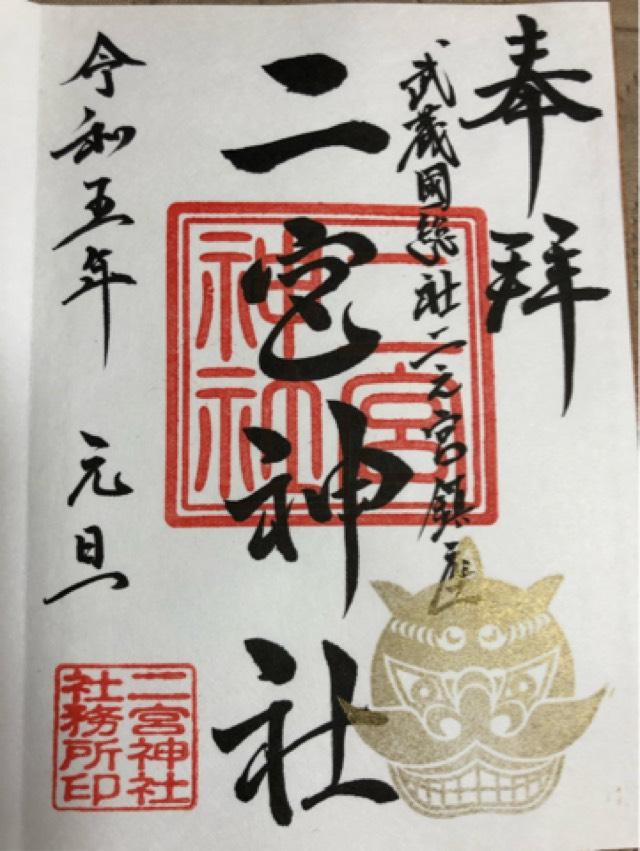 奉拝
武蔵国総社二之宮鎮座
二宮神社
令和五年 元旦
二宮神社
二宮神社
社務所印